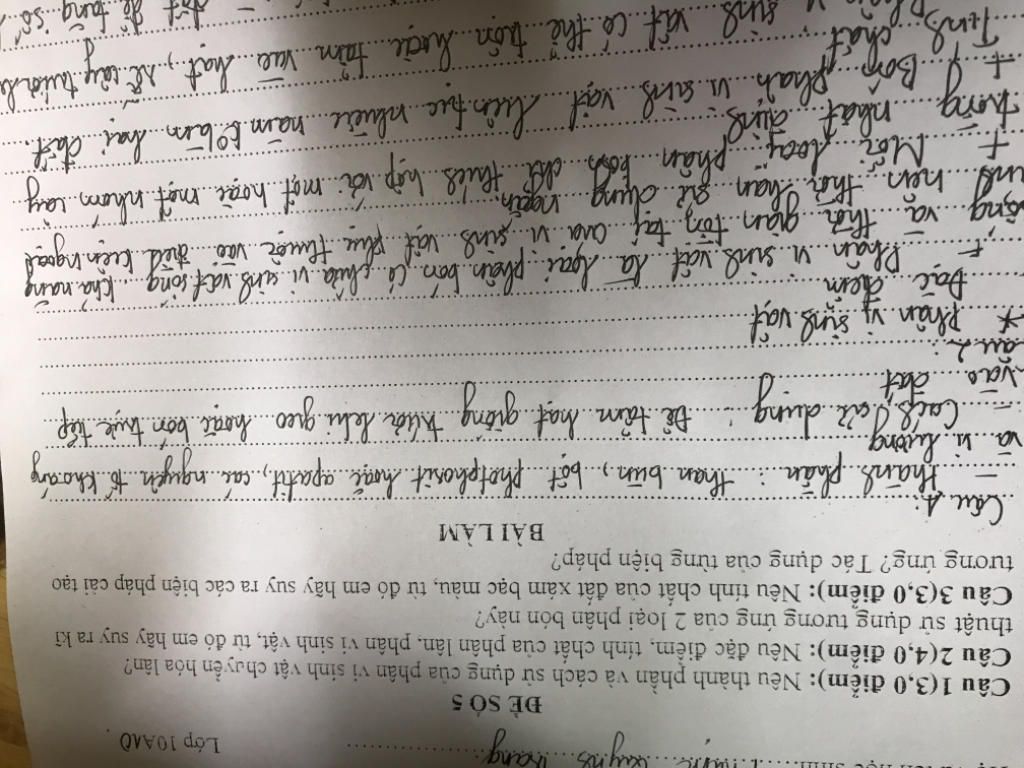 Lớp 10A10
ĐỀ SỐ 5
Câu 1(3,0 điểm): Nêu thành phần và cách sử dụng của phân vi sinh vật chuyển hóa lân?
Câu 2(4,0 điểm): Nêu đặc điểm, tính chất của phân lân, phân vi sinh vật, từ đó em hãy suy ra kĩ
thuật sử dụng tương ứng của 2 loại phân bón này?
Câu 3(3,0 điểm): Nêu tính chất của đất xám bạc màu, từ đó em hãy suy ra các biện pháp cải tạo
tương ứng? Tác dụng của từng biện pháp?
BÀI LÀM
Câu 1:
- Thành phần : than bùn, bột photphorit hoặc apatit, các nguyên tố khoáng
và vi lượng
- Cách sử dụng : Để tẩm hạt giống trước khi gieo hoặc bón trực tiếp
vào đất
câu 2 :
* Phân vi sinh vật
Đặc điểm
+ Phân vi sinh vật là loại phân bón có chứa vi sinh vật sống khả năng
sống và thời gian tồn tại của vi sinh vật phụ thuộc vào điều kiện ngoại
nên thời hạn sử dụng ngắn
+ Mỗi loại phân bón chỉ thích hợp với một hoặc một nhóm cây
trồng nhất định
+ Bón phân vi sinh vật liên tục nhiều năm không làm hại đất.
Tính chất
sinh vật có thể trộn hoặc tẩm vào hạt, rễ cây trước
đất để tăng số